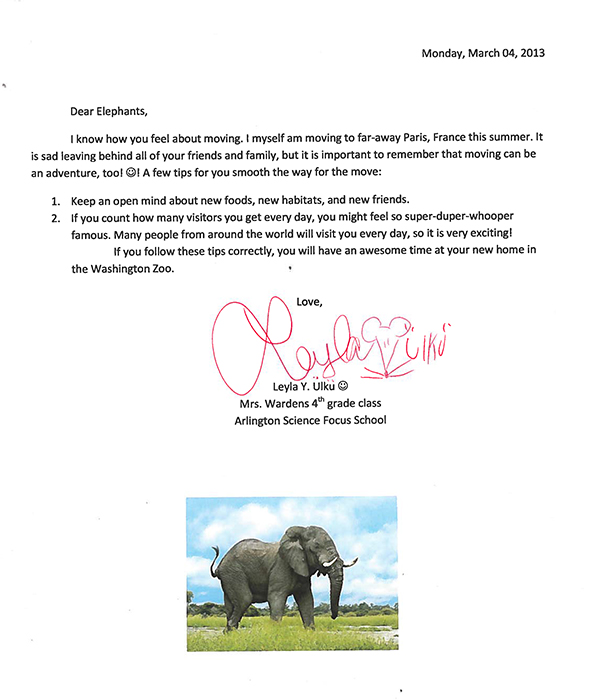 Monday, March 04, 2013
Dear Elephants,
I know how you feel about moving. I myself am moving to far-away Paris, France this summer. It
is sad leaving behind all of your friends and family, but it is important to remember that moving can be
an adventure, too! ☺! A few tips for you smooth the way for the move:
1. Keep an open mind about new foods, new habitats, and new friends.
2. If you count how many visitors you get every day, you might feel so super-duper-whooper
famous. Many people from around the world will visit you every day, so it is very exciting!
If you follow these tips correctly, you will have an awesome time at your new home in
the Washington Zoo.
Love,
Leyla Ülkü
Leyla Y. Ülkü ☺
Mrs. Wardens 4th grade class
Arlington Science Focus School